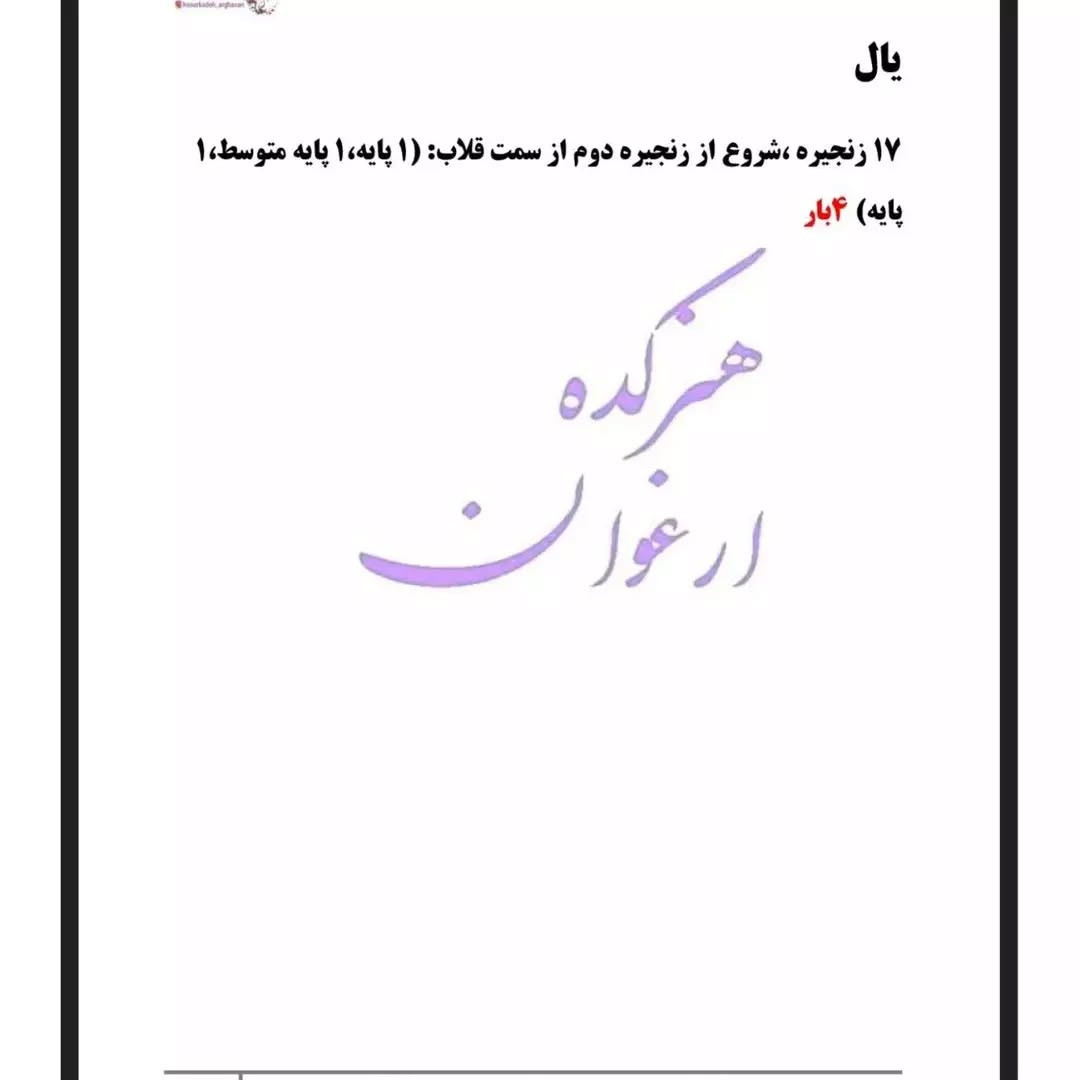 honarkadeh_arghavan
یال
۱۷ زنجیره ،شروع از زنجیره دوم از سمت قلاب: (۱ پایه،۱ پایه متوسط،۱
پایه) ۴بار
هنرکده
ارغوان